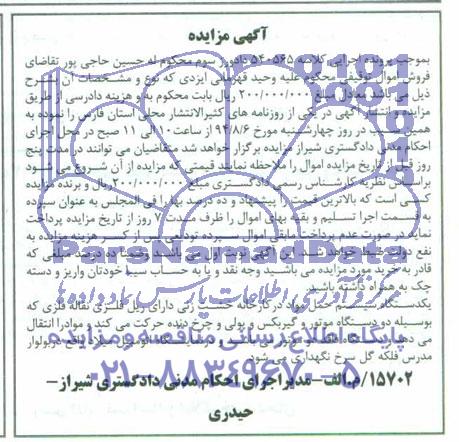 آگهی مزایده
بموجب پرونده اجرایی کلاسه ۵۴۰۵۶۵ دادورز سوم محکوم له حسین حاجی پور تقاضای
فروش اموال توقیفی محکوم علیه وحید قهرمانی ایزدی که نوع و مشخصات آن بشرح
ذیل می باشد معادل مبلغ ۲۰۰/۰۰۰/۰۰۰ ریال بابت محکوم به و هزینه دادرسی از طریق
مزایده با انتشار آگهی در یکی از روزنامه های کثیرالانتشار محلی استان فارس را نموده به
همین در روز چهارشنبه مورخ ۹۴/۸/۶ از ساعت ۱۰ الی ۱۱ صبح در محل اجرای
احکام مدنی دادگستری شیراز مزایده برگزار خواهد شد متقاضیان می توانند در مدت پنج
روز قبل از تاریخ مزایده اموال را ملاحظه نمایند قیمتی که مزایده از آن شروع می شود
براساس نظریه کارشناس رسمی دادگستری مبلغ ۲۰۰/۰۰۰/۰۰۰ ریال و برنده مزایده
کسی است که بالاترین قیمت را پیشنهاد و ده درصد بها را فی المجلس به عنوان سپرده
به قسمت اجرا تسلیم و بقیه بهای اموال را ظرف مدت ۷ روز از تاریخ مزایده پرداخت
نماید در صورت عدم پرداخت مابقی اموال سپرده تودیعی پس از کسر هزینه مزایده به
نفع دولت ضبط خواهد شد. این آگهی نوبت اول می باشد. ضمنا ده درصد مبلغی که
قادر به خرید مورد مزایده می باشید وجه نقد و یا به حساب سیبا خودتان واریز و دسته
چک به همراه داشته باشید.
یکدستگاه سیستم حمل مواد در کارخانه دارای ریل فلزی نقاله فلزی که
بوسیله دو دستگاه گیربکس و پولی و چرخ دنده حرکت می کند و موادرا انتقال
می دهد دربولوار
مدرس فلکه گل سرخ نگهداری می شود.
۱۵۷۰۲/م.الف-مدیراجرای احکام مدنی دادگستری شیراز-
حیدری
ParsNamadData
مرکز فرآوری اطلاعات پارس نماد داده ها
پایگاه اطلاع رسانی مناقصه و مزایده
۰۲۱-۸۸۳۴۹۶۷۰-۵